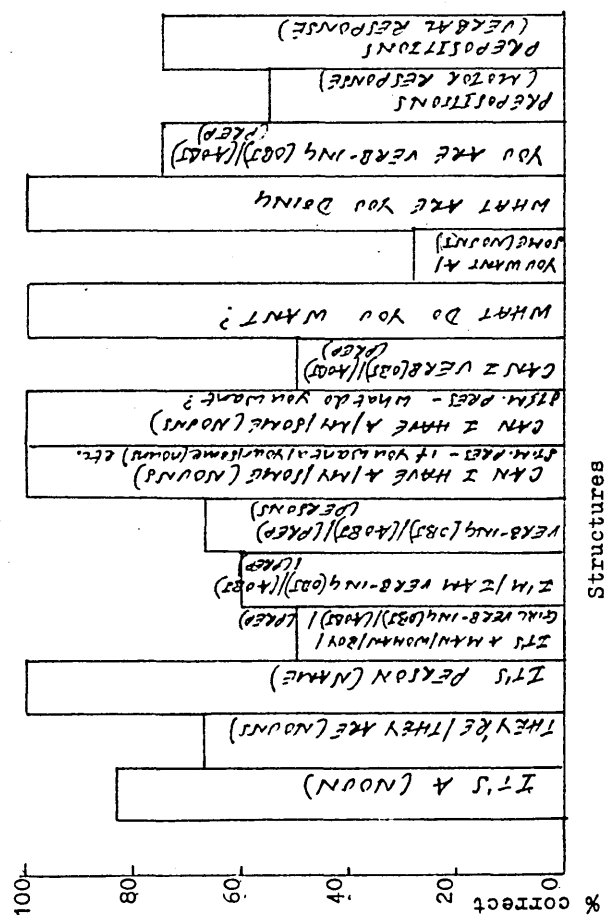 % correct
100
80
60
40
20
0
IT'S A (NOUN)
THEY'RE/THEY ARE (NOUNS)
IT'S PERSON (NAME)
IT'S A MAN/WOMAN/BOY/
GIRL VERB-ING (OBJ)/(AOBJ)/(PREP)
I'M/I AM VERB-ING (OBJ)/(AOBJ)
(PREP)
VERB-ING (OBJ)/(AOBJ)/(PREP)
(PERSONS)
CAN I HAVE A/MY/SOME (NOUNS)
STIM. PRES - if you want a/your/some (nouns) etc.
CAN I HAVE A/MY/SOME (NOUNS)
STIM. PRES - What do you want?
CAN I VERB (OBJ)/(AOBJ)
(PREP)
WHAT DO YOU WANT?
YOU WANT A/
SOME (NOUNS)
WHAT ARE YOU DOING
YOU ARE VERB-ING (OBJ)/(AOBJ)
(PREP)
PREPOSITIONS
(MOTOR RESPONSE)
PREPOSITIONS
(VERBAL RESPONSE)
Structures